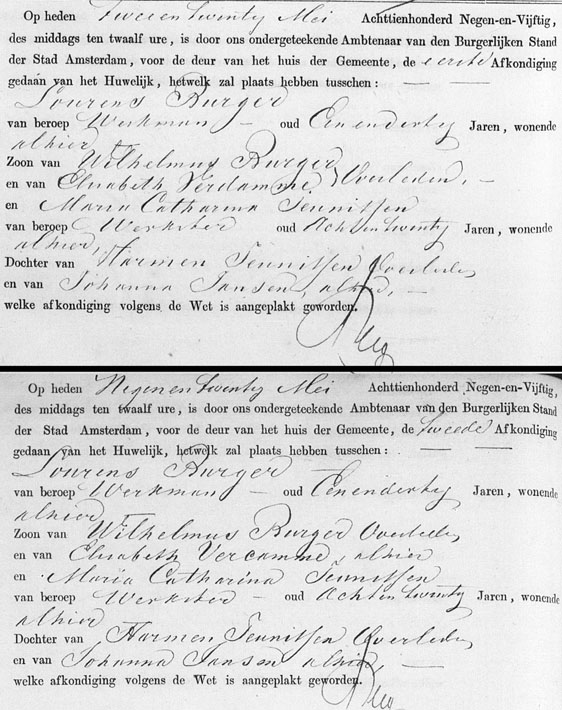 Op heden Twee en twintig Mei Achttienhonderd Negen-en-Vijftig,
des middags ten twaalf ure, is door ons ondergeteekende Ambtenaar van den Burgerlijken Stand
der Stad Amsterdam, voor de deur van het huis der Gemeente, de eerste Afkondiging
gedaan van het Huwelijk, hetwelk zal plaats hebben tusschen:
Lourens Burger
van beroep Werkman oud Eenendertig Jaren, wonende
alhier
Zoon van Wilhelmus Burger
en van Elisabeth Verdamme, Overleden,
en Maria Catharina Teunissen
van beroep Werkster oud Achtentwintig Jaren, wonende
alhier,
Dochter van Harmen Teunissen Overleden
en van Johanna Jansen, alhier,
welke afkondiging volgens de Wet is aangeplakt geworden.
Op heden Negen en twintig Mei Achttienhonderd Negen-en-Vijftig,
des middags ten twaalf ure, is door ons ondergeteekende Ambtenaar van den Burgerlijken Stand
der Stad Amsterdam, voor de deur van het huis der Gemeente, de tweede Afkondiging
gedaan van het Huwelijk, hetwelk zal plaats hebben tusschen:
Lourens Burger
van beroep Werkman oud Eenendertig Jaren, wonende
alhier
Zoon van Wilhelmus Burger Overleden
en van Elisabeth Vercamme, alhier
en Maria Catharina Teunissen
van beroep Werkster oud Achtentwintig Jaren, wonende
alhier
Dochter van Harmen Teunissen Overleden
en van Johanna Jansen alhier,
welke afkondiging volgens de Wet is aangeplakt geworden.